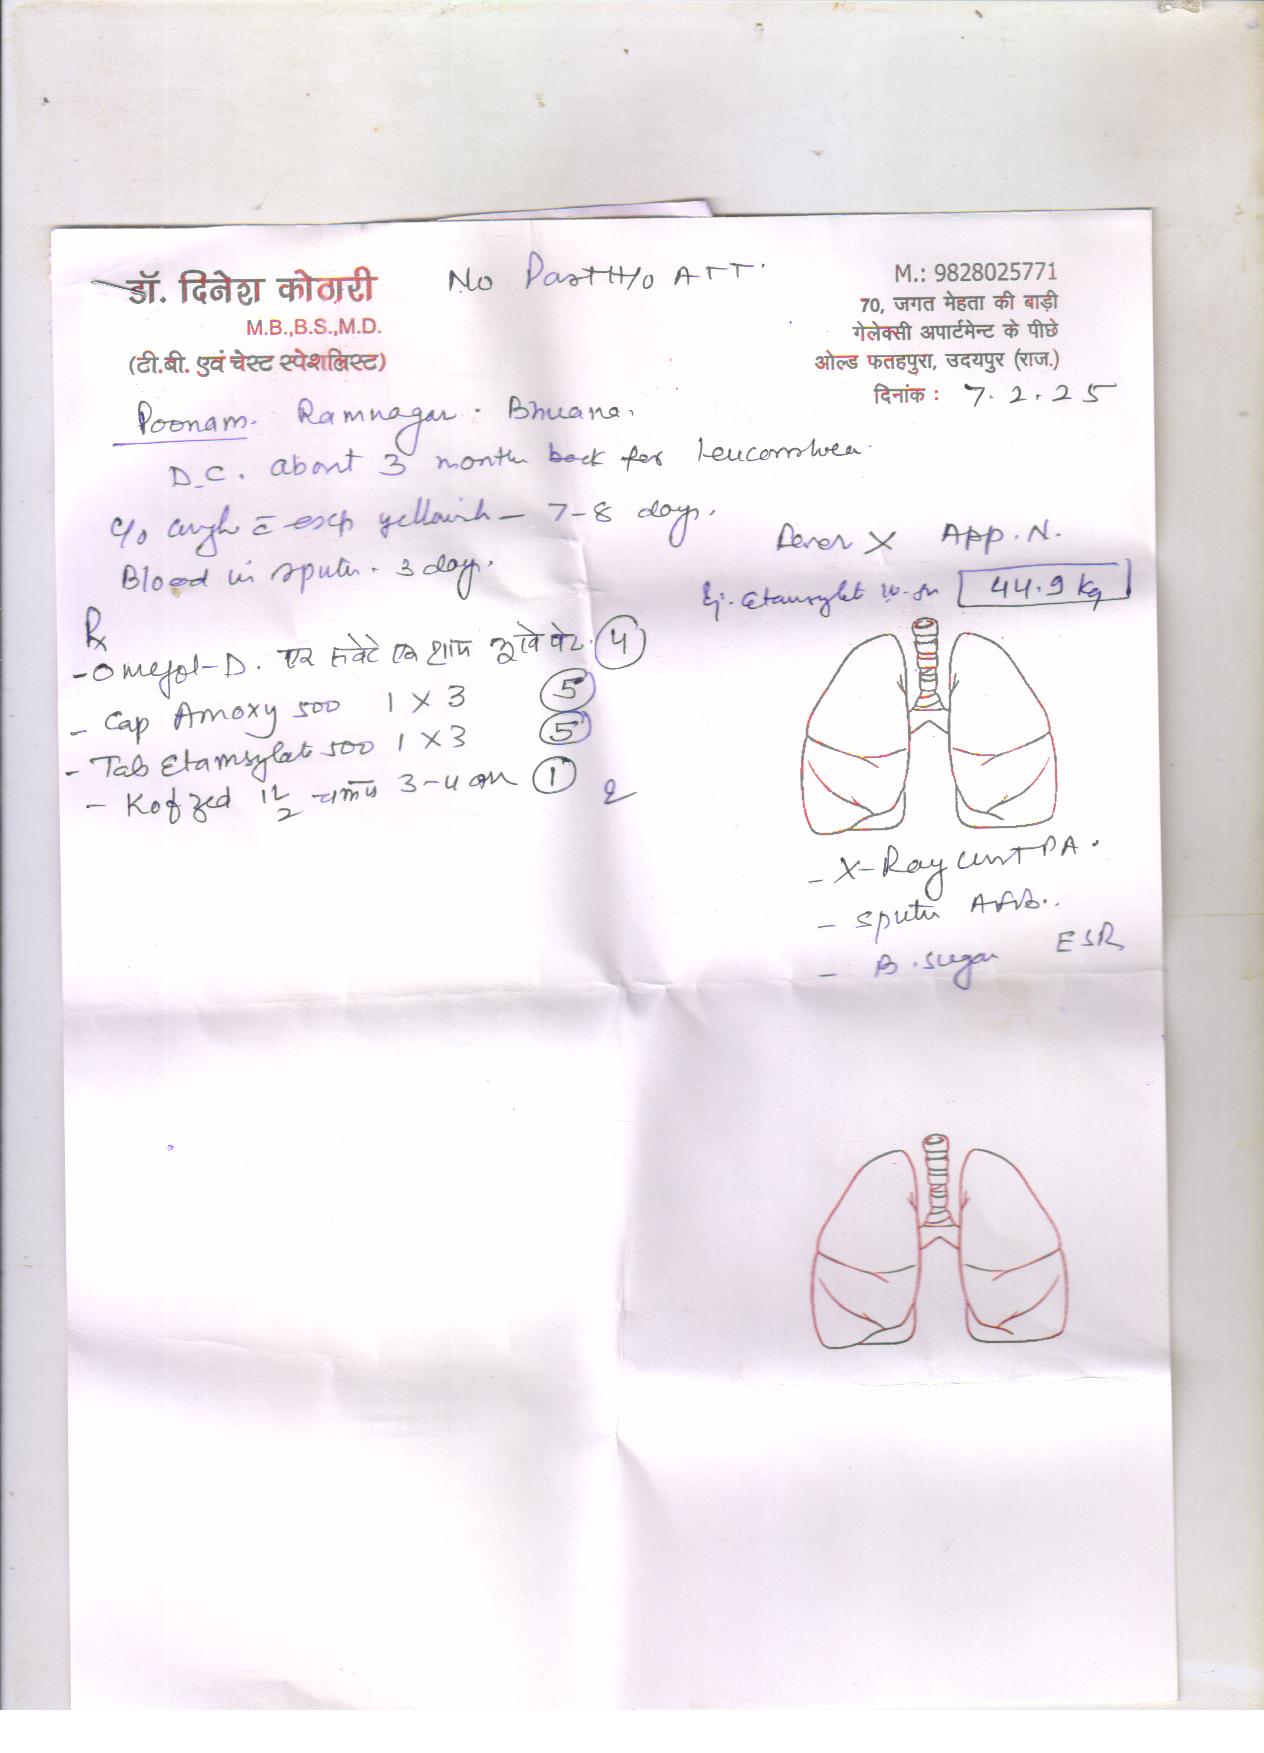 डॉ. दिनेश कोठारी
M.B.,B.S.,M.D.
(टी.बी. एवं चेस्ट स्पेशलिस्ट)
No Past H/o ATT.
M.: 9828025771
70, जगत मेहता की बाड़ी
गेलेक्सी अपार्टमेन्ट के पीछे
ओल्ड फतहपुरा, उदयपुर (राज.)
दिनांक : 7.2.25
Poonam. Ramnagar. Bhuana.
D.C. about 3 month back for Leucorrhea.
c/o cough c̄ exp yellowish - 7-8 days.
Fever X App. N.
Blood in sputu. 3 day.
Inj. Etamsylet 44.9 kg
Rx
- Omezol-D. एक सवेरे एक शाम भूखे पेट. 4
- Cap Amoxy 500 1 X 3 5
- Tab Etamsylate 500 1 X 3 5
- Kofzed 1½ चम्मच 3-4 1
- X-Ray chest PA.
- Sputu AFB..
- B. sugar ESR